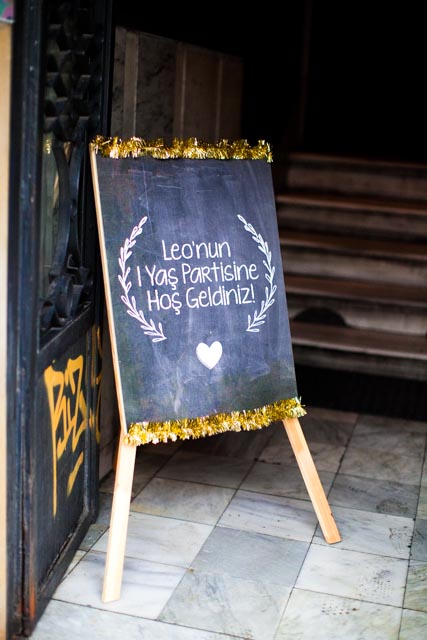 Leo'nun
1 Yaş Partisine
Hoş Geldiniz!